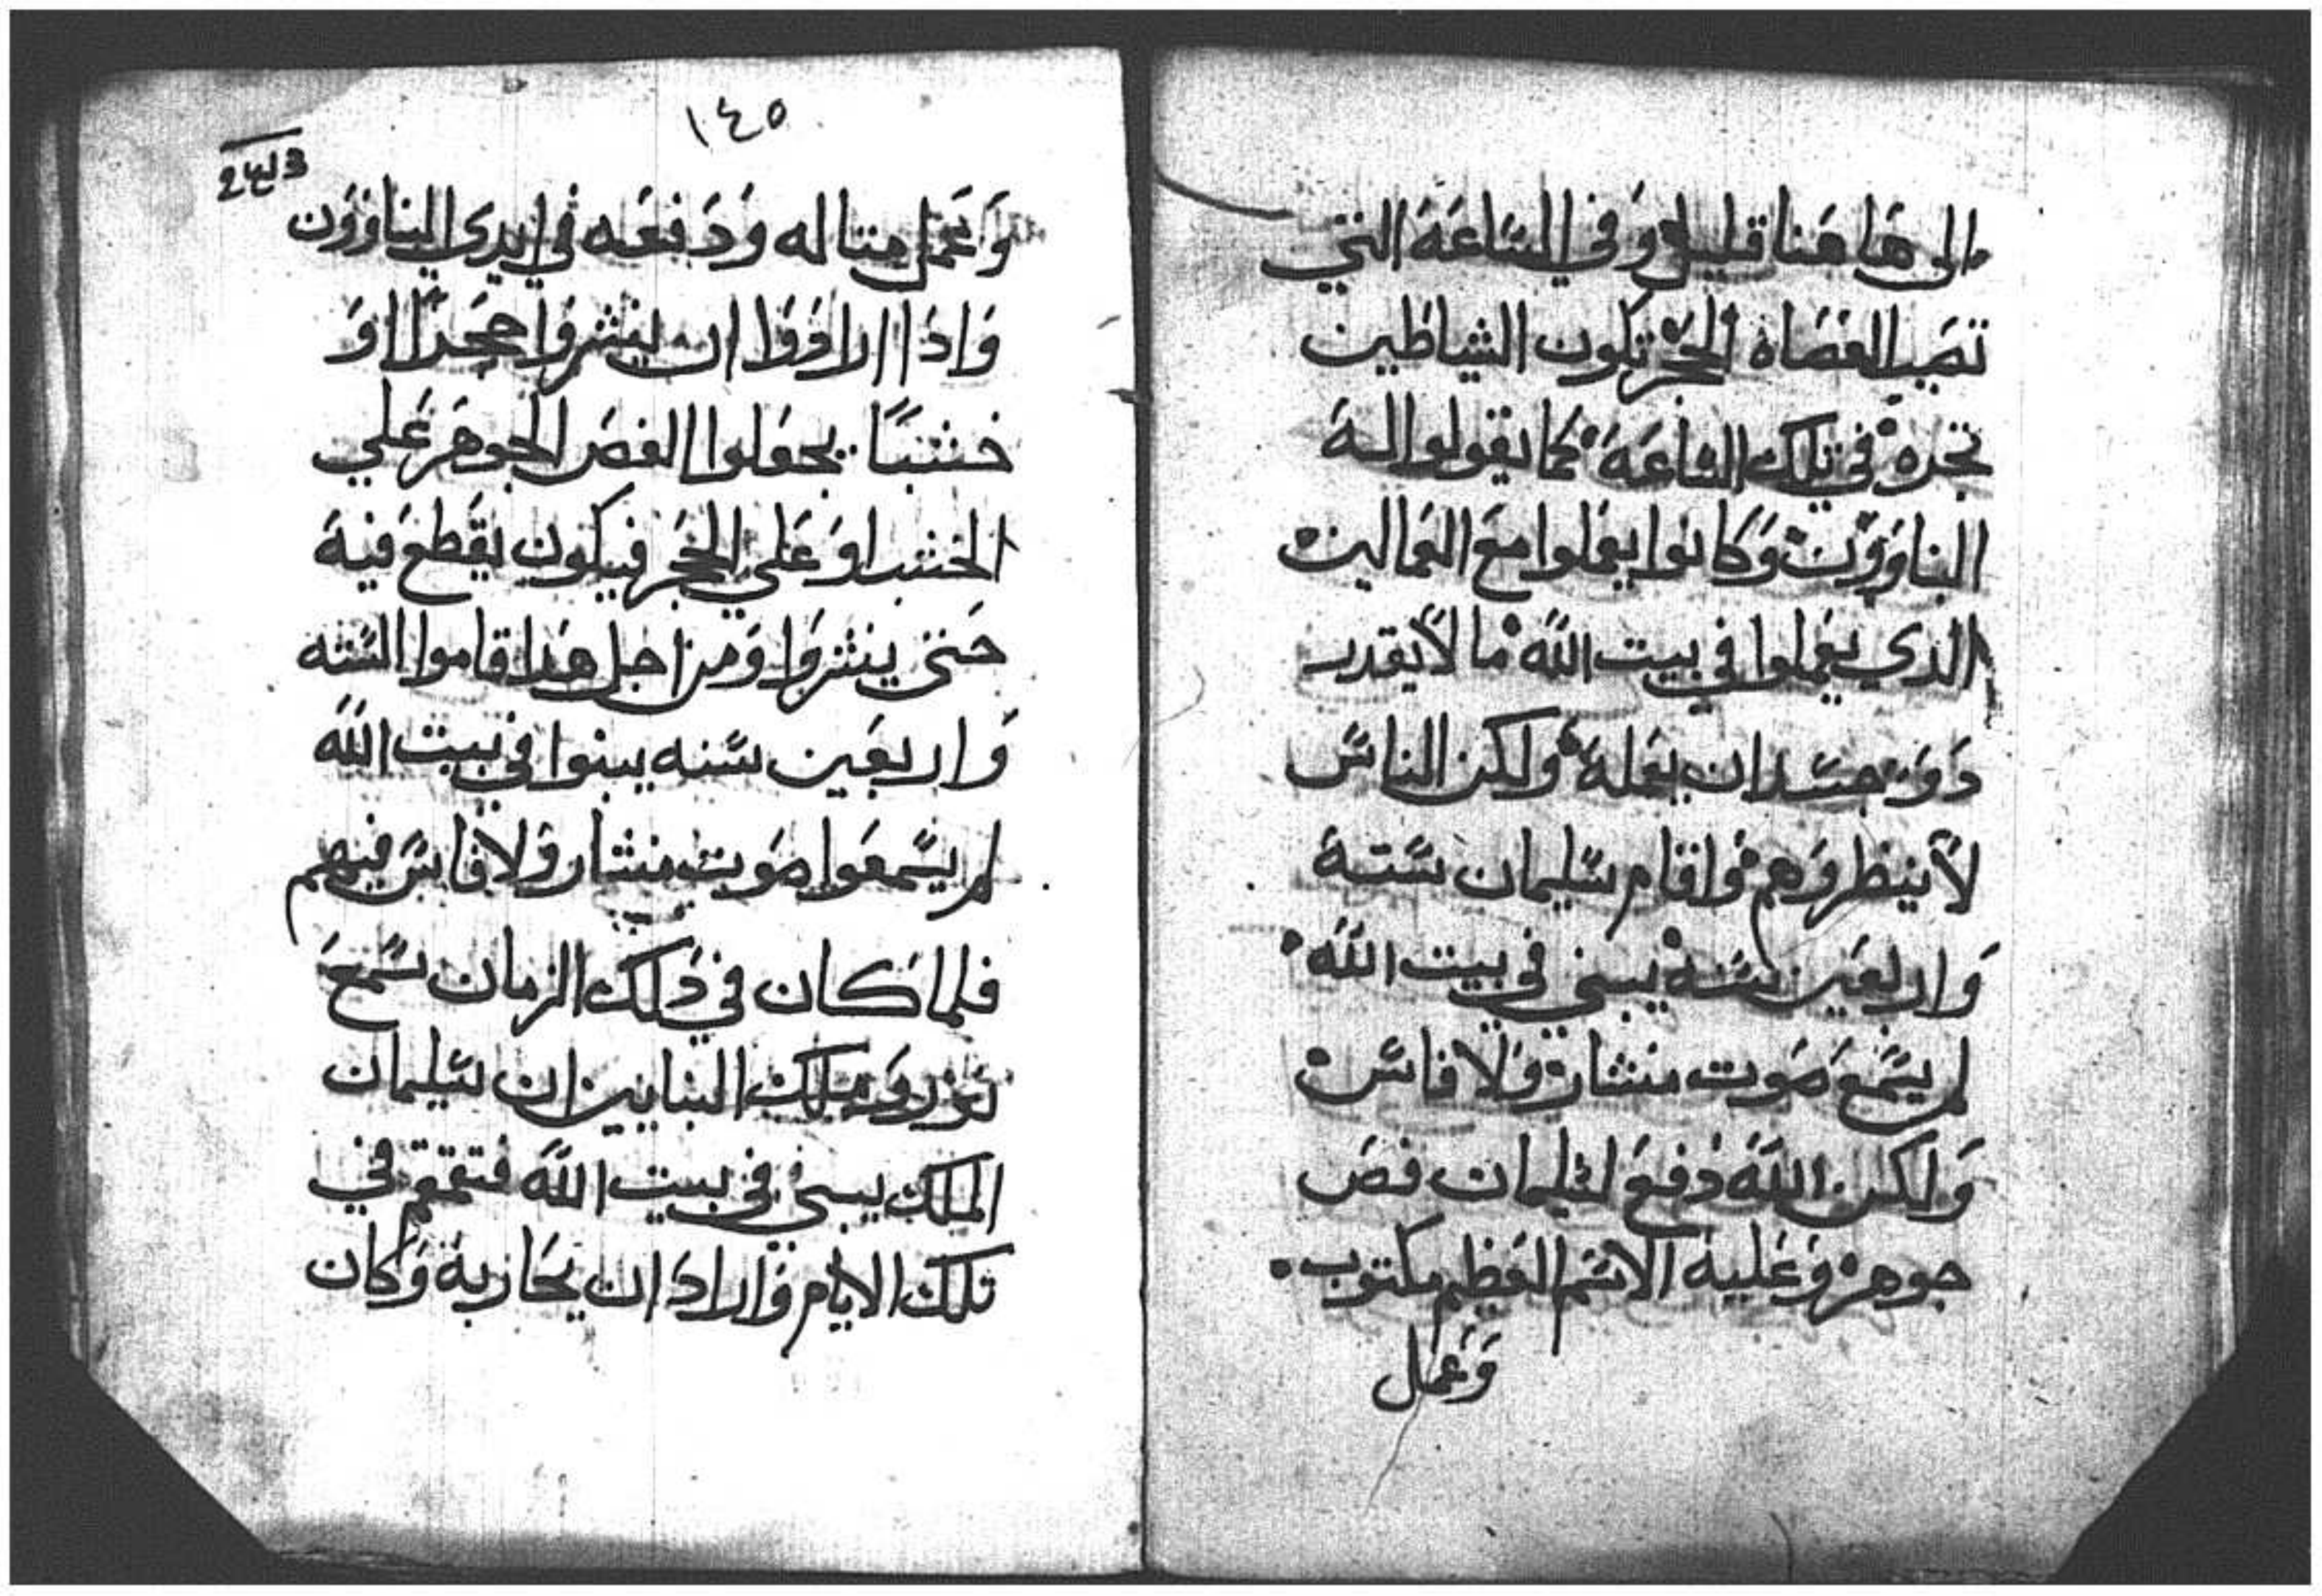 الى هاهنا قليل وفي الساعة التي
تصب القضاه الحجر تكون الشياطين
تجره في تلك الساعة كما يقولوا له
البناوون وكانوا يعملوا مع العمالين
الدي يعملوا في بيت الله ما لا يقدر
دو جسد ان يعمله ولكن الناس
لا ينظروهم واقام سليمان ستة
واربعين سنه يبني في بيت الله
لم يسمع صوت منشار ولا فاس
ولكن الله دفع لسليمان فص
جوهر وعليه الاسم العظيم مكتوب
وعمل
١٤٥
وعمل متاله ودفعه في ايدي البناوون
واذا ارادوا ان ينشروا حجرًا او
خشبًا يجعلوا الفص الجوهر علي
الخشب او علي الحجر فيكون يقطع فيه
حتى ينشروا ومن اجل هدا قاموا السته
واربعين سنه يبنوا في بيت الله
لم يسمعوا صوت منشار ولا فاس فيهم
فلما كان في ذلك الزمان سمع
ملك البنايين ان سليمان
الملك يبني في بيت الله فتقمقم في
تلك الايام واراد ان يحاربة وكان